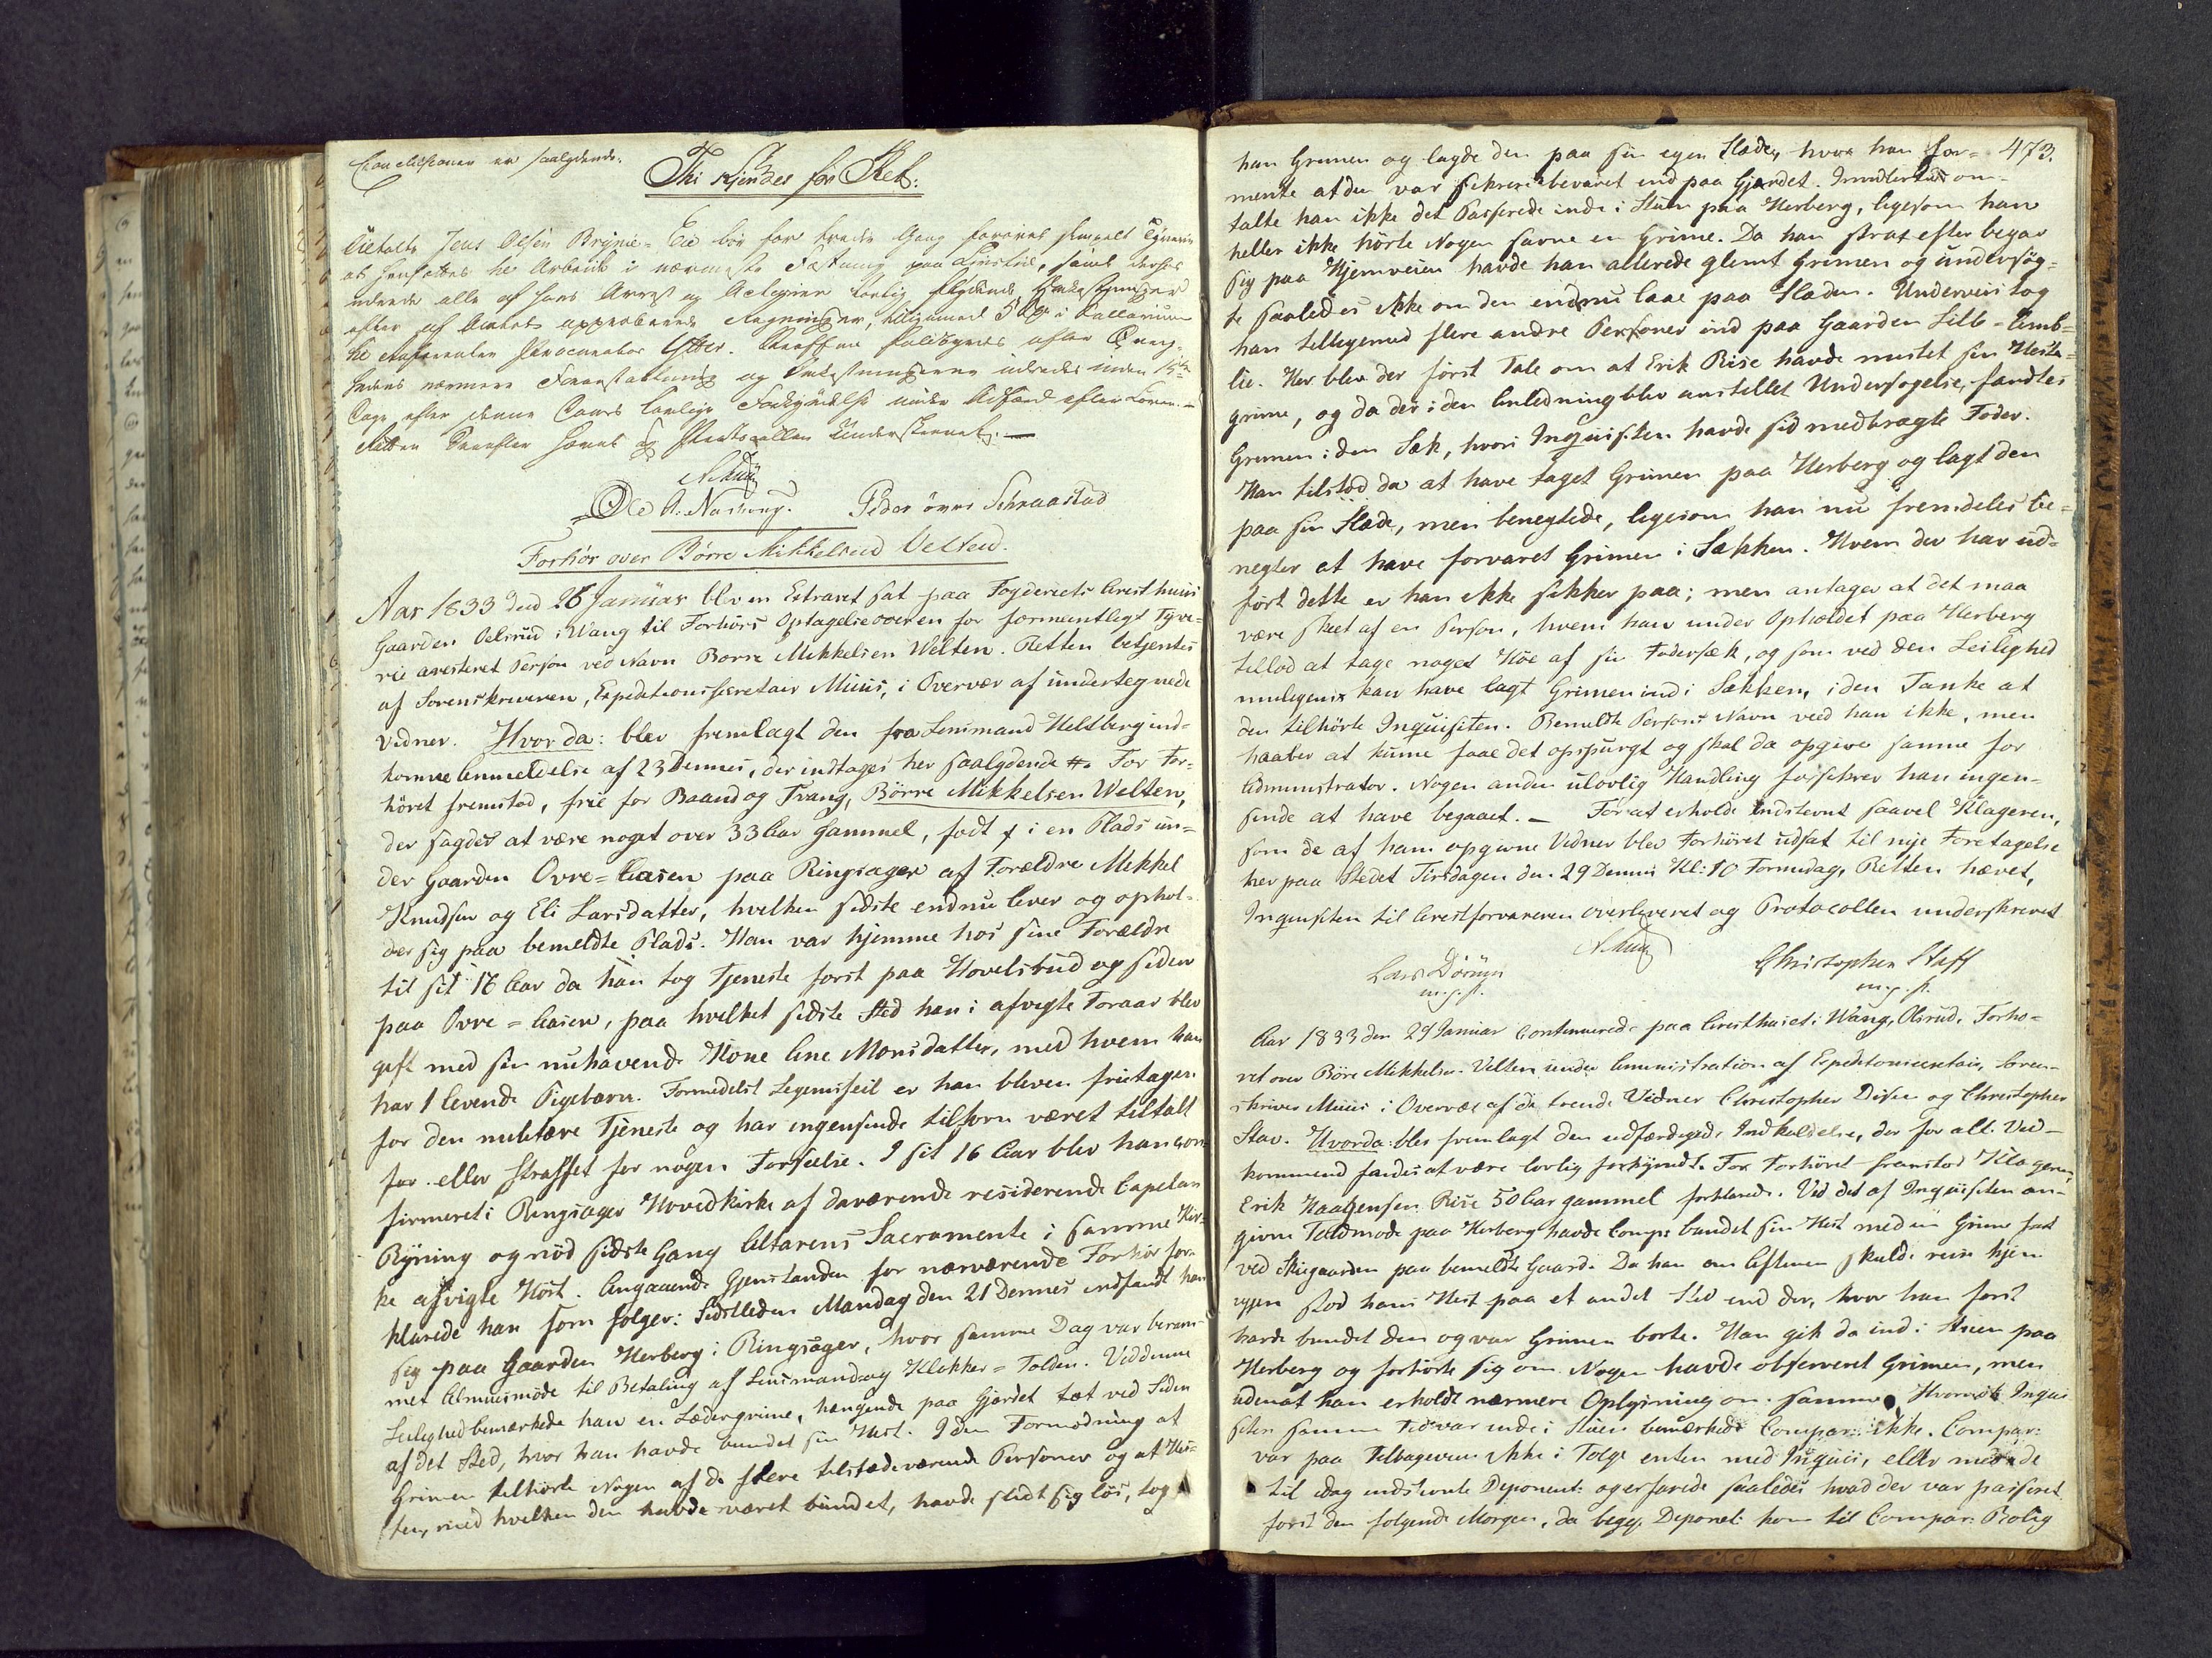 Conclusionen er saalydende.
Thi kjendes for Ret:
Tiltalte Jens Olsen Brynie-Eie bör for tredie Gang forövet simpelt Tyverie
at hensættes til Arbeide i nærmeste Fæstning paa Livstid, samt derhos
udrede alle af hans Arrest og Actionen lovlig flydende Omkostninger
efter af Amtet approberede Regninger, tilligemed 5 Spd i Sallarium
til Procurator Ytter. Straffen fuldbyrdes efter Övrig-
hedens nærmere Foranstaltning og Omkostningerne udredes inden 15
Dage efter denne Doms lovlige Forkyndelse under Adfærd efter Loven. –
Retten derefter hævet og Protocollen underskrevet. —
NMuus
Ole A. Narlung. Peder övre Schraastad
Forhör over Börre Mikkelsen Velten.
Aar 1833 den 26 Januar blev en Extraret sat paa Fogderiets Aresthuus
Gaarden Oelsrud i Wang til Forhörs Optagelse over en for formeentligt Tyve-
rie aresteret Person ved Navn Borre Mikkelsen Welten. Retten betjentes
af Sorenskriveren, Expeditionssecretair Muus, i Overvær af undertegnede
Vidner. Hvorda: blev fremlagt den fra Lensmand Heltberg ind-
komne Anmeldelse af 23 Dennes, der indtages her saalydende #. For For-
höret fremstod, frie for Baand og Tvang, Börre Mikkelsen Welten,
der sagdes at være noget over 33 Aar gammel, födt i en Plads un-
der Gaarden Ovre-Aasen paa Ringsager af Forældre Mikkel
Knudsen og Eli Larsdatter, hvilken sidste endnu lever og ophol-
der sig paa bemeldte Plads. Han var hjemme hos sine Forældre
til sit 16 Aar da han tog Tjeneste först paa Hovelsrud og siden
paa Ovre-Aasen, paa hvilket sidste Sted han i afvigte Foraar blev
gift med sin nuhavende Kone Ane Monsdatter, med hvem han
har 1 levende Pigebarn. Formedelst Legemsfeil er han bleven frietagen
for den militære Tjeneste og har ingensinde tilforn været tiltalt
for eller straffet for nogen Forseelse. I sit 16 Aar blev han con-
firmeret i Ringsager Hovedkirke af daværende residerende Capelan
Rynning og nöd sidste Gang Altarens Sacramente i samme Kir-
ke afvigte Höst. Angaaende Gjenstanden for nærværende Forhör for-
klarede han som fölger: Sidstleden Mandag den 21 Dennes indfandt han
sig paa Gaarden Herberg i Ringsager, hvor samme Dag var beram-
met Almuesmöde til Betaling af Lensmands og Klokker-Tolden. Ved denne
Leilighed bemærkede han en Lædergrime, hængende paa Gjærdet tæt ved Siden
af det Sted, hvor han havde bundet sin Hest. I den Formodning at
Grimen tilhörte Nogen af de flere tilstædeværende Personer og at Hes-
ten, med hvilken den havde været bundet, havde slidt sig lös, tog
473.
han Grimen og lagde den paa sin egen Slæde, hvor han for-
mente at den var sikrere bevaret end paa Gjærdet. Imidlertid om-
talte han ikke det Passerede inde i Stuen paa Herberg, ligesom han
heller ikke hörte Nogen savne en Grime. Da han strax efter begav
sig paa Hjemveien havde han allerede glemt Grimen og undersög-
te saaledes ikke om den endnu laae paa Slæden. Underveis tog
han tilligemed flere andre Personer ind paa Gaarden Lille-Amb-
lie. Her blev der först Tale om at Erik Rise havde mistet sin Heste-
grime, og da der i den Anledning blev anstillet Undersogelse, fandtes
Grimen i den Sæk, hvori Inquisiten havde sit medbragte Foder.
Han tilstod da at have taget Grimen paa Herberg og lagt den
paa sin Slæde, men benegtede, ligesom han nu fremdeles be-
negter at have forvaret Grimen i Sækken. Hvem der har ud-
fört dette er han ikke sikker paa; men antager at det maa
være skeet af en Person, hvem han under Opholdet paa Herberg
tillod at tage noget Höe af sin Fodersæk, og som ved den Leilighed
muligens kan have lagt Grimen ind i Sækken, i den Tanke at
den tilhörte Inquisiten. Bemeldte Persons Navn veed han ikke, men
haaber at kunne faae det opspurgt og skal da opgive samme for
Administrator. Nogen anden ulovlig Handling forsikrer han ingen-
sinde at have begaaet. — For at erholde indstevnt saavel Klageren,
som de af ham opgivne Vidner blev Forhöret udsat til nye Foretagelse
her paa Stedet Tirsdagen den 29 Dennes Kl: 10 Formidag, Retten hævet,
Inquisiten til Arestforvareren overleveret og Protocollen underskrevet
NMuus
Lars Döruyn Christopher Staff
m.p.p. m.p.p.
Aar 1833 den 29 Januar continuerede paa Aresthuset i Wang, Olsrud, Forhö-
ret over Böre Mikkelsen Velten under Administration af Expeditionssecretair, Soren-
skriver Muus i Overvær af de tvende Vidner Christopher Disen og Christopher
Stav. Hvorda: blev fremlagt den udfærdigede Indkaldelse, der for alle Ved-
kommende fandtes at være lovlig forkyndt. For Forhöret fremstod Klageren
Erik Haagensen Rise 50 Aar gammel forklarede. Ved det af Inquisiten an-
givne Toldmöde paa Herberg havde Comp: bundet sin Hest med en Grime fast
ved Skigaarden paa bemeldte Gaard. Da han om Aftenen skulde reise hjem
igjen stod hans Hest paa et andet Sted end der, hvor han först
havde bundet den og var Grimen borte. Han gik da ind i Stuen paa
Herberg og forhörte sig om Nogen havde observeret Grimen, men
uden at han erholdt nærmere Oplysning om samme. Hvorvidt Inqui-
siten samme Tid var inde i Stuen bemærkede Compar: ikke. Compar:
var paa Tilbageveien ikke i Fölge enten med Inquis:, eller med de
til idag indstevnte Deponent: og erfarede saaledes hvad der var passeret
först den folgende Morgen, da begge Deponet: kom til Compar: Bolig